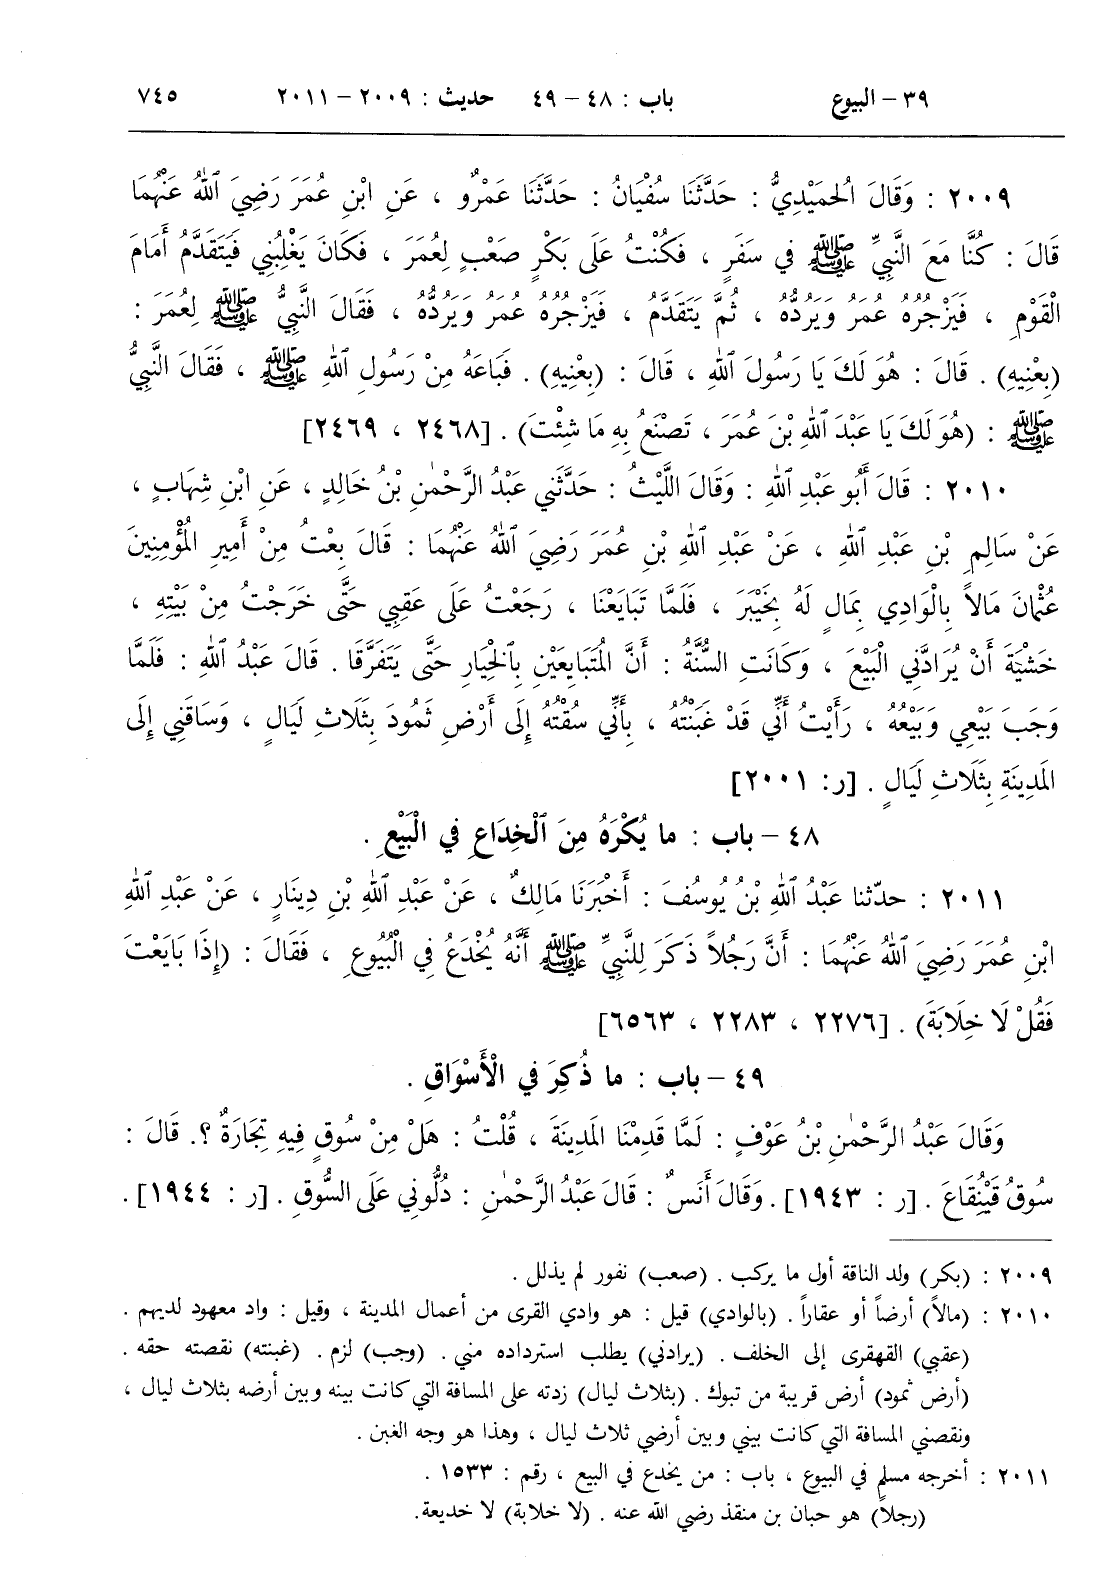 ٣٩ – البيوع باب : ٤٨ – ٤٩ حديث : ٢٠٠٩ – ٢٠١١ ٧٤٥
٢٠٠٩ : وَقَالَ الحُمَيْدِيُّ : حَدَّثَنَا سُفْيَانُ : حَدَّثَنَا عَمْرٌو ، عَنِ ابْنِ عُمَرَ رَضِيَ اللهُ عَنْهُمَا
قَالَ : كُنَّا مَعَ النَّبِيِّ ﷺ في سَفَرٍ ، فَكُنْتُ عَلَى بَكْرٍ صَعْبٍ لِعُمَرَ ، فَكَانَ يَغْلِبُنِي فَيَتَقَدَّمُ أَمَامَ
الْقَوْمِ ، فَيَزْجُرُهُ عُمَرُ وَيَرُدُّهُ ، ثُمَّ يَتَقَدَّمُ ، فَيَزْجُرُهُ عُمَرُ وَيَرُدُّهُ ، فَقَالَ النَّبِيُّ ﷺ لِعُمَرَ :
(بِعْنِيهِ) . قَالَ : هُوَ لَكَ يَا رَسُولَ اللهِ ، قَالَ : (بِعْنِيهِ) . فَبَاعَهُ مِنْ رَسُولِ اللهِ ﷺ ، فَقَالَ النَّبِيُّ
ﷺ : (هُوَ لَكَ يَا عَبْدَ اللهِ بْنَ عُمَرَ ، تَصْنَعُ بِهِ مَا شِئْتَ) . [٢٤٦٨ ، ٢٤٦٩]
٢٠١٠ : قَالَ أَبُو عَبْدِ اللهِ : وَقَالَ اللَّيْثُ : حَدَّثَنِي عَبْدُ الرَّحْمٰنِ بْنُ خَالِدٍ ، عَنِ ابْنِ شِهَابٍ ،
عَنْ سَالِمِ بْنِ عَبْدِ اللهِ ، عَنْ عَبْدِ اللهِ بْنِ عُمَرَ رَضِيَ اللهُ عَنْهُمَا : قَالَ بِعْتُ مِنْ أَمِيرِ الْمُؤْمِنِينَ
عُثْمَانَ مَالاً بِالْوَادِي بِمَالٍ لَهُ بِخَيْبَرَ ، فَلَمَّا تَبَايَعْنَا ، رَجَعْتُ عَلَى عَقِبِي حَتَّى خَرَجْتُ مِنْ بَيْتِهِ ،
خَشْيَةَ أَنْ يُرَادَّنِي الْبَيْعَ ، وَكَانَتِ السُّنَّةُ : أَنَّ الْمُتَبَايِعَيْنِ بِالْخِيَارِ حَتَّى يَتَفَرَّقَا . قَالَ عَبْدُ اللهِ : فَلَمَّا
وَجَبَ بَيْعِي وَبَيْعُهُ ، رَأَيْتُ أَنِّي قَدْ غَبَنْتُهُ ، بِأَنِّي سُقْتُهُ إِلَى أَرْضِ ثَمُودَ بِثَلَاثِ لَيَالٍ ، وَسَاقَنِي إِلَى
المَدِينَةِ بِثَلَاثِ لَيَالٍ . [ر: ٢٠٠١]
٤٨ – باب : ما يُكْرَهُ مِنَ الْخِدَاعِ في الْبَيْعِ .
٢٠١١ : حدّثنا عَبْدُ اللهِ بْنُ يُوسُفَ : أَخْبَرَنَا مَالِكٌ ، عَنْ عَبْدِ اللهِ بْنِ دِينَارٍ ، عَنْ عَبْدِ اللهِ
ابْنِ عُمَرَ رَضِيَ اللهُ عَنْهُمَا : أَنَّ رَجُلاً ذَكَرَ لِلنَّبِيِّ ﷺ أَنَّهُ يُخْدَعُ فِي الْبُيُوعِ ، فَقَالَ : (إِذَا بَايَعْتَ
فَقُلْ لَا خِلَابَةَ) . [٢٢٧٦ ، ٢٢٨٣ ، ٦٥٦٣]
٤٩ – باب : ما ذُكِرَ في الْأَسْوَاقِ .
وَقَالَ عَبْدُ الرَّحْمٰنِ بْنُ عَوْفٍ : لَمَّا قَدِمْنَا المَدِينَةَ ، قُلْتُ : هَلْ مِنْ سُوقٍ فِيهِ تِجَارَةٌ ؟. قَالَ :
سُوقُ قَيْنُقَاعَ . [ر : ١٩٤٣] . وَقَالَ أَنَسٌ : قَالَ عَبْدُ الرَّحْمٰنِ : دُلُّونِي عَلَى السُّوقِ . [ر : ١٩٤٤] .
٢٠٠٩ : (بكر) ولد الناقة أول ما يركب . (صعب) نفور لم يذلل .
٢٠١٠ : (مالاً) أرضاً أو عقاراً . (بالوادي) قيل : هو وادي القرى من أعمال المدينة ، وقيل : واد معهود لديهم .
(عقبي) القهقرى إلى الخلف . (يرادني) يطلب استرداده مني . (وجب) لزم . (غبنته) نقصته حقه .
(أرض ثمود) أرض قريبة من تبوك . (بثلاث ليال) زدته على المسافة التي كانت بينه وبين أرضه بثلاث ليال ،
ونقصني المسافة التي كانت بيني وبين أرضي ثلاث ليال ، وهذا هو وجه الغبن .
٢٠١١ : أخرجه مسلم في البيوع ، باب : من يخدع في البيع ، رقم : ١٥٣٣ .
(رجلاً) هو حبان بن منقذ رضي الله عنه . (لا خلابة) لا خديعة.